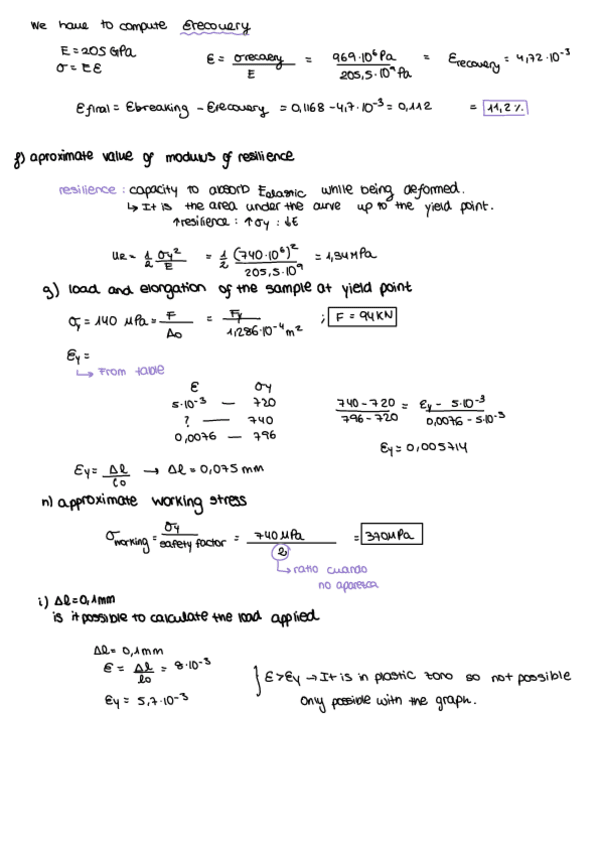 We have to compute Erecovery
E=205 GPa
σ = EE
E = σrecovery / E = 969·10⁶ Pa / 205,5·10⁹ Pa = Erecovery = 4,72·10⁻³
Efinal = Ebreaking - Erecovery = 0,1168 - 4,7·10⁻³ = 0,112 = 11,2%
f) aproximate value of modulus of resilience
resilience : capacity to absorb Eelastic while being deformed.
↳ It is the area under the curve up to the yield point.
↑resilience : ↑σy : ↓E
UR = 1/2 σy²/E = 1/2 (740·10⁶)² / 205,5·10⁹ = 1,34 MPa
g) load and elongation of the sample at yield point
σy = 140 MPa = F / A0 = Fy / 1,286·10⁻⁴ m² ; F = 94 KN
Ey =
↳ From table
E σy
5·10⁻³ — 720
? — 740
0,0076 — 796
740 - 720 / 796 - 720 = Ey - 5·10⁻³ / 0,0076 - 5·10⁻³
Ey = 0,005714
Ey = Δl / l0 → Δl = 0,075 mm
h) approximate working stress
σworking = σy / safety factor = 740 MPa / 2 = 370 MPa
↳ ratio cuando
no aparesca
i) Δl = 0,1mm
is it possible to calculate the load applied
Δl = 0,1mm
E = Δl / l0 = 8·10⁻³
Ey = 5,7·10⁻³
} E > Ey → It is in plastic zone so not possible
Only possible with the graph.